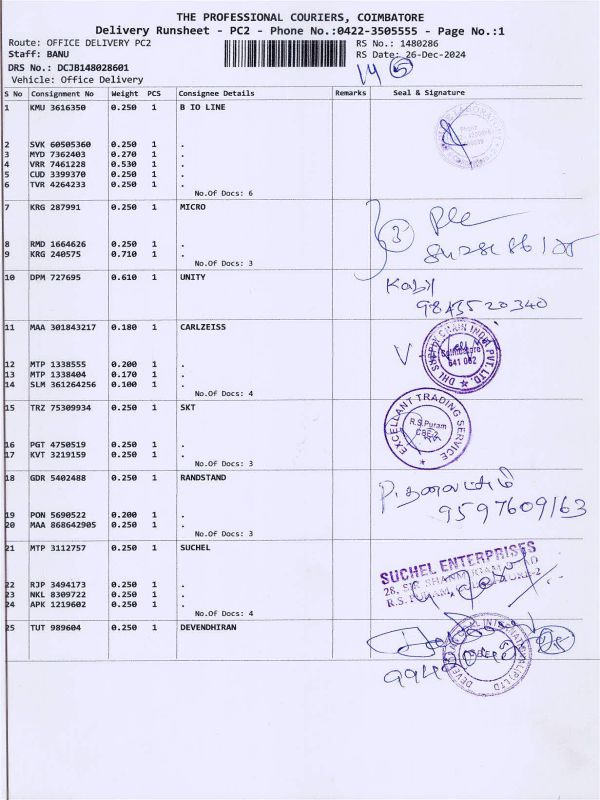 THE PROFESSIONAL COURIERS, COIMBATORE
Delivery Runsheet - PC2 - Phone No.:0422-3505555 - Page No.:1
Route: OFFICE DELIVERY PC2
RS No.: 1480286
Staff: BANU
RS Date: 26-Dec-2024
DRS No.: DCJB148028601
Vehicle: Office Delivery
14 5
S No Consignment No Weight PCS Consignee Details Remarks Seal & Signature
1 KMU 3616350 0.250 1 B IO LINE
2 SVK 60505360 0.250 1 .
3 MYD 7362403 0.270 1 .
4 VRR 7461228 0.530 1 .
5 CUD 3399370 0.250 1 .
6 TVR 4264233 0.250 1 .
No.Of Docs: 6
7 KRG 287991 0.250 1 MICRO
3
8 RMD 1664626 0.250 1 .
9 KRG 240575 0.710 1 .
No.Of Docs: 3
10 DPM 727695 0.610 1 UNITY
9843520340
11 MAA 301843217 0.180 1 CARLZEISS
DHL SUPPLY CHAIN INDIA PVT. LTD.
Coimbatore
641 062
12 MTP 1338555 0.200 1 .
13 MTP 1338404 0.170 1 .
14 SLM 361264256 0.100 1 .
No.Of Docs: 4
15 TRZ 75309934 0.250 1 SKT
EXCELLANT TRADING SERVICE
R.S.Puram
CBE-2
16 PGT 4750519 0.250 1 .
17 KVT 3219159 0.250 1 .
No.Of Docs: 3
18 GDR 5402488 0.250 1 RANDSTAND
9597609163
19 PON 5690522 0.200 1 .
20 MAA 868642905 0.250 1 .
No.Of Docs: 3
21 MTP 3112757 0.250 1 SUCHEL
SUCHEL ENTERPRISES
R.S. PURAM,
22 RJP 3494173 0.250 1 .
23 NKL 8309722 0.250 1 .
24 APK 1219602 0.250 1 .
No.Of Docs: 4
25 TUT 989604 0.250 1 DEVENDHIRAN